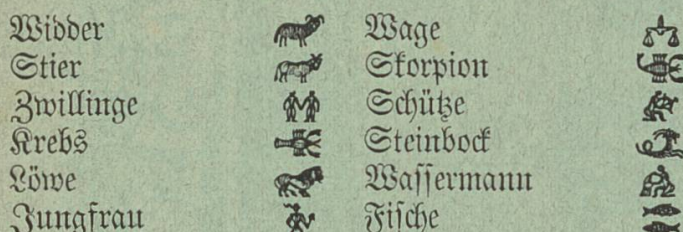 Widder
Stier
Zwillinge
Krebs
Löwe
Jungfrau
Wage
Skorpion
Schütze
Steinbock
Wassermann
Fische